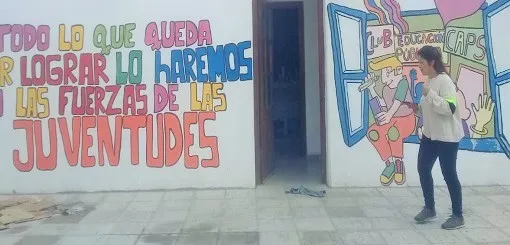 TODO LO QUE QUEDA
R LOGRAR LO HAREMOS
LAS FUERZAS DE LAS
JUVENTUDES
CLUB EDUCACION CAPS